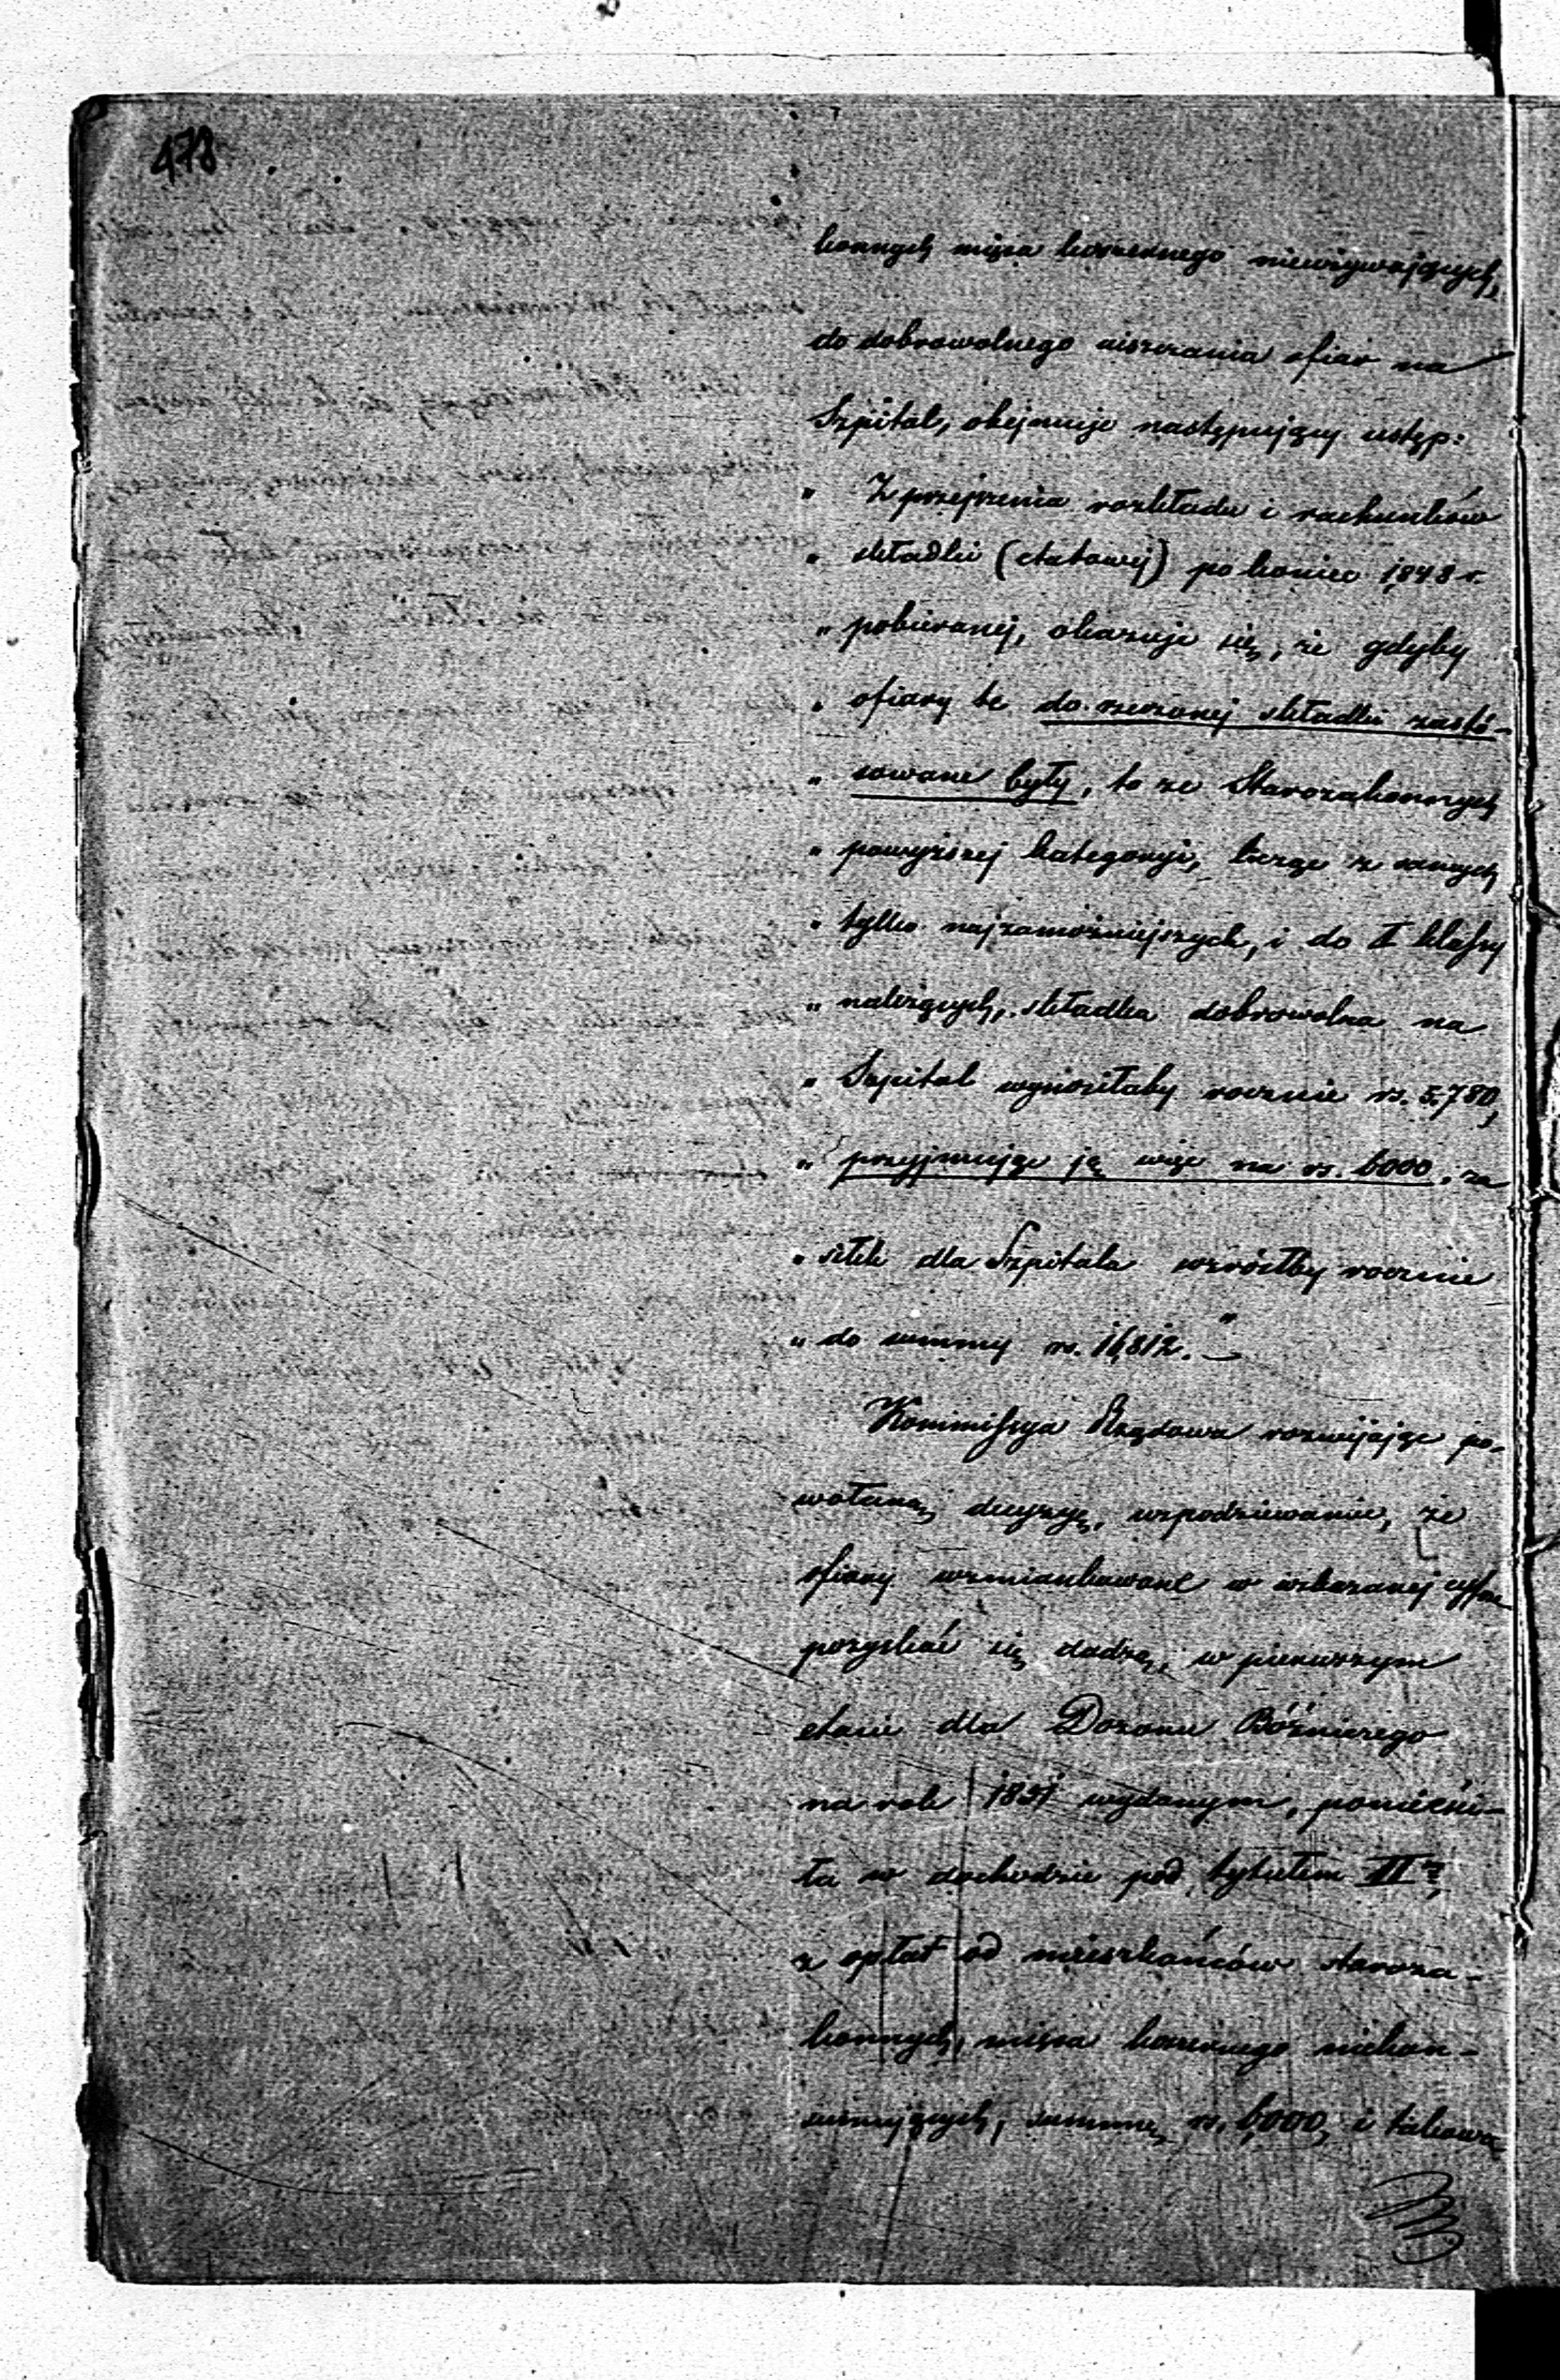 478
konnych mięsa koszernego nieużywających,
do dobrowolnego uiszczania ofiar na
Szpital, obejmuje następujący ustęp:
„ Z przejrzenia rozkładu i rachunków
„ składki (etatowej) po koniec 1848 r.
„ pobieranej, okazuje się, że gdyby
„ ofiary te do rzeczonej składki zastó-
„ sowane były, to ze Starozakonnych
„ powyższej kategoryi, licząc z samych
„ tylko najzamożniejszych, i do klassy
„ należących, składka dobrowolna na
„ Szpital wyniosłaby rocznie rs. 5,780,
„ przyjmując ją więc na rs. 6000, za
„ siłek dla Szpitala wzrósłby rocznie
„ do summy rs. 16,812. "
Kommissya Rządowa rozwijając po-
wołaną decyzyę, w spodziewaniu, że
ofiary wzmiankowane w wskazanej cyfrze
pozyskać się dadzą, w pierwszym
etacie dla Dozoru Bóżniczego
na rok 1851 wydanym, pomieści-
ła w dochodzie pod tytułem II
z opłat od mieszkańców staroza-
konnych, mięsa koszernego niekon-
sumujących, summę rs. 6,000, i takowa